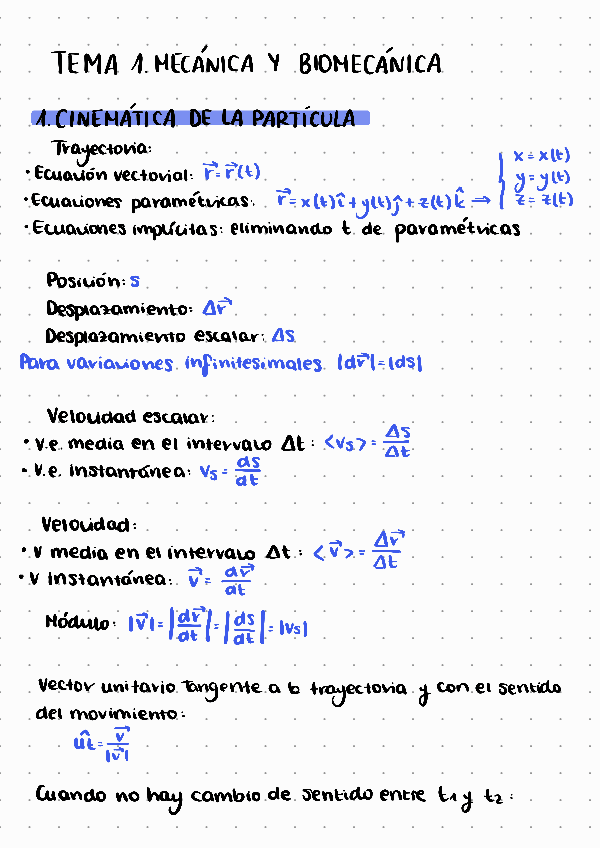 TEMA 1. MECÁNICA Y BIOMECÁNICA
1. CINEMÁTICA DE LA PARTÍCULA
Trayectoria:
· Ecuación vectorial: r⃗ = r⃗(t)
· Ecuaciones paramétricas: r⃗ = x(t)î + y(t)ĵ + z(t)k̂ → { x = x(t)
y = y(t)
z = z(t)
· Ecuaciones implícitas: eliminando t de paramétricas
Posición: s
Desplazamiento: Δr⃗
Desplazamiento escalar: Δs
Para variaciones infinitesimales |dr⃗| = |ds|
Velocidad escalar:
· v.e. media en el intervalo Δt: <vs> = Δs/Δt
· v.e. instantánea: vs = ds/dt
Velocidad:
· v media en el intervalo Δt: <v⃗> = Δr⃗/Δt
· v instantánea: v⃗ = dr⃗/dt
Módulo: |v⃗| = |dr⃗/dt| = |ds/dt| = |vs|
Vector unitario tangente a la trayectoria y con el sentido
del movimiento:
ût = v⃗/|v⃗|
Cuando no hay cambio de sentido entre t1 y t2: